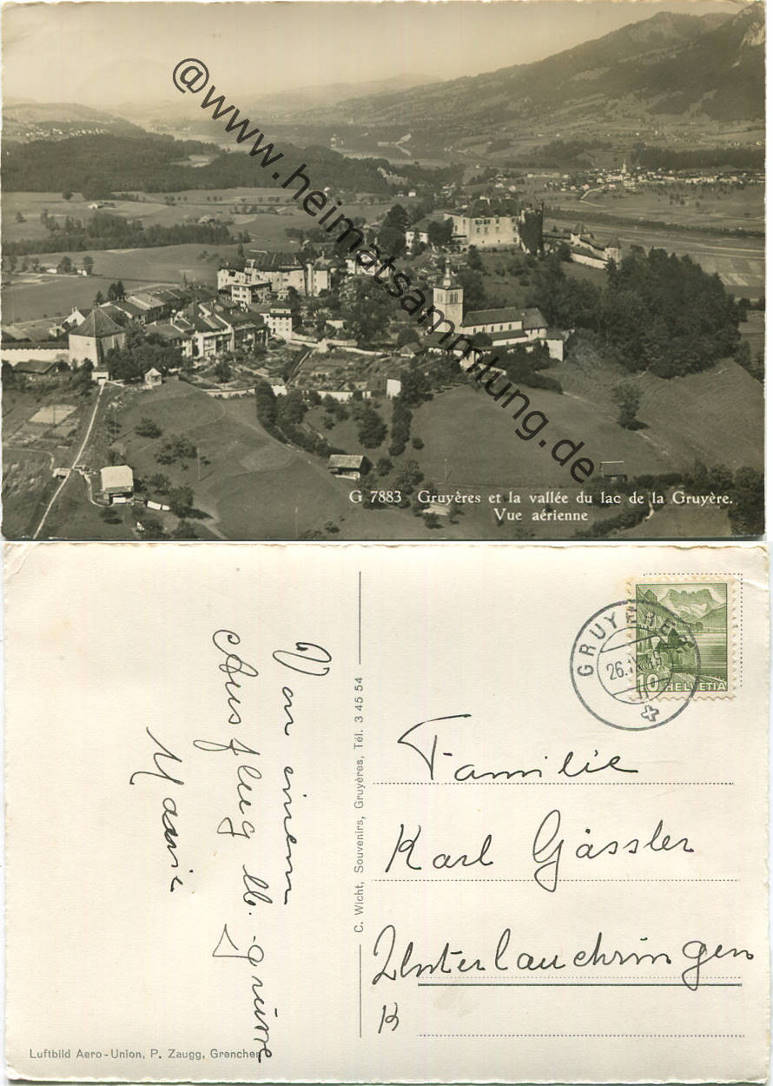 @www.heimatsammlung.de
G 7883 Gruyères et la vallée du lac de la Gruyère.
Vue aérienne
GRUYERES
26.IX.49
10 HELVETIA
Von einem
Ausflug lb. grüsse
Marie
C. Wicht, Souvenirs, Gruyères, Tél. 3 45 54
Familie
Karl Gässler
Unterlauchringen
Luftbild Aero-Union, P. Zaugg, Grenchen